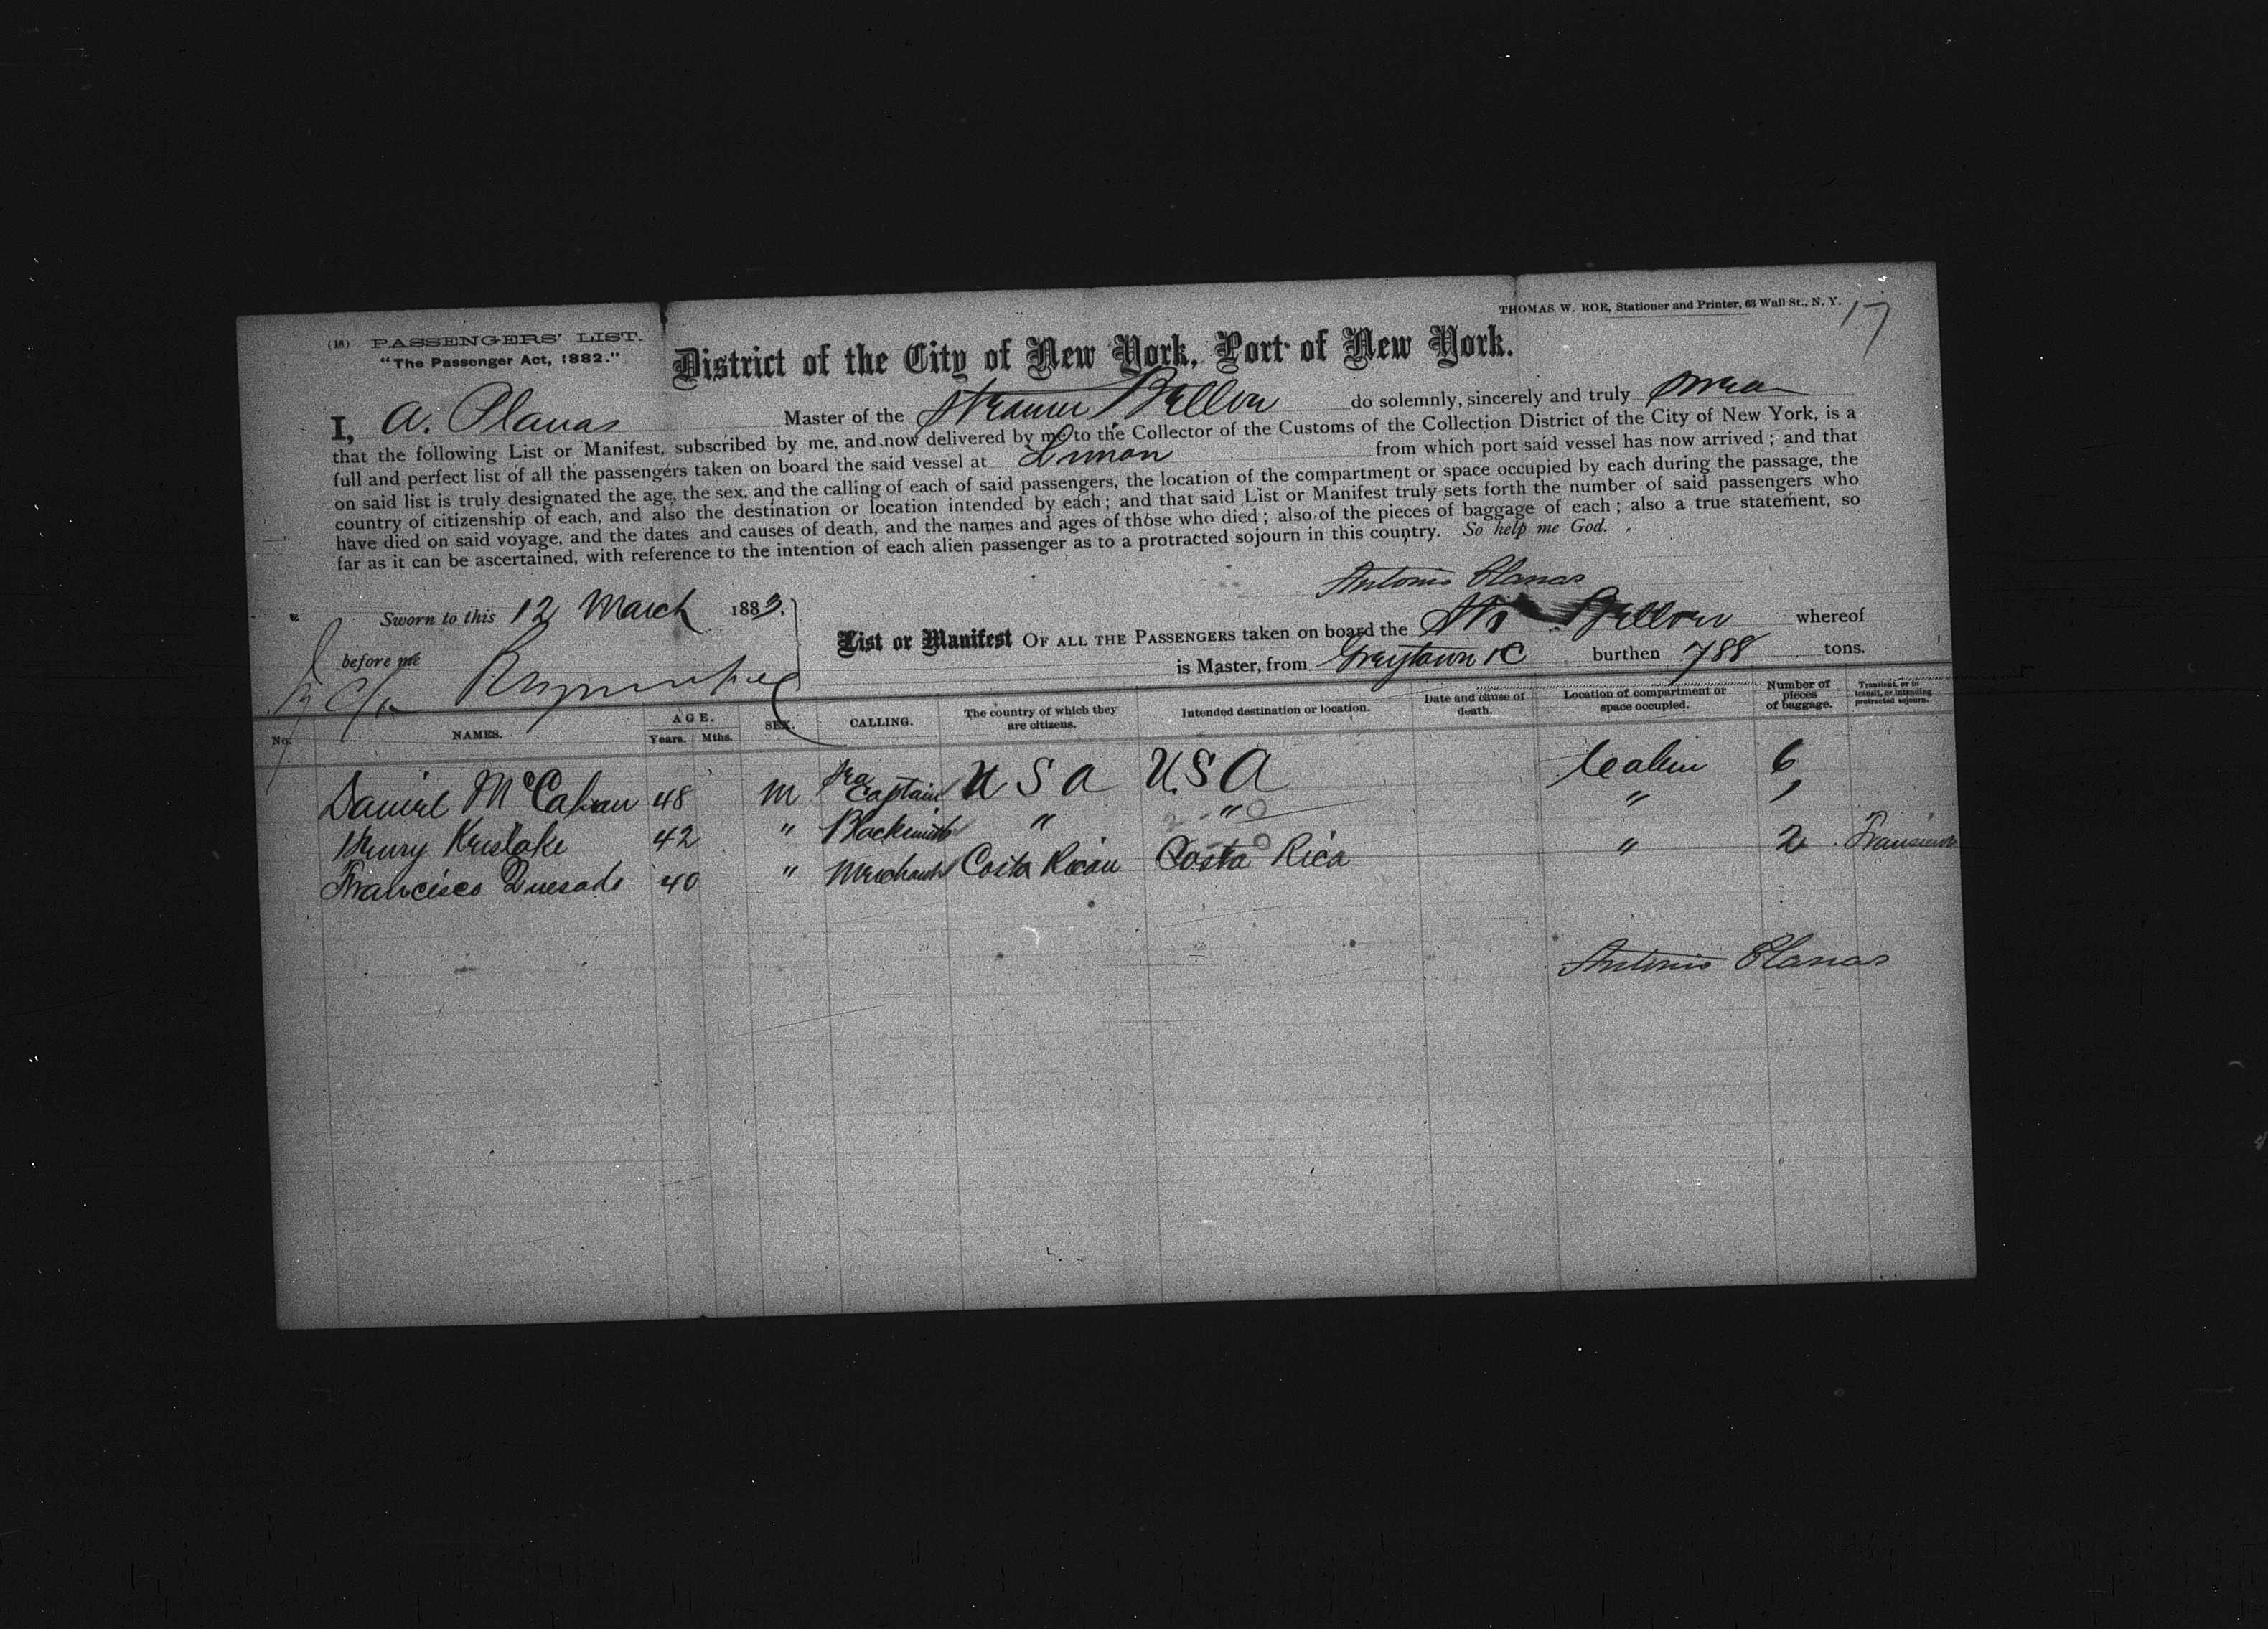 THOMAS W. ROE, Stationer and Printer, 63 Wall St., N. Y.
17
(18) PASSENGERS' LIST.
"The Passenger Act, 1882."
District of the City of New York, Port of New York.
I, A. Planas Master of the Steamer do solemnly, sincerely and truly swear
that the following List or Manifest, subscribed by me, and now delivered by me to the Collector of the Customs of the Collection District of the City of New York, is a
full and perfect list of all the passengers taken on board the said vessel at Limon from which port said vessel has now arrived; and that
on said list is truly designated the age, the sex, and the calling of each of said passengers, the location of the compartment or space occupied by each during the passage, the
country of citizenship of each, and also the destination or location intended by each; and that said List or Manifest truly sets forth the number of said passengers who
have died on said voyage, and the dates and causes of death, and the names and ages of those who died; also of the pieces of baggage of each; also a true statement, so
far as it can be ascertained, with reference to the intention of each alien passenger as to a protracted sojourn in this country. So help me God.
Antonio Planas
Sworn to this 12 March 1883.
before me
List or Manifest OF ALL THE PASSENGERS taken on board the whereof
is Master, from Greytown burthen 788 tons.
No. NAMES. AGE. Years. Mths. SEX. CALLING. The country of which they are citizens. Intended destination or location. Date and cause of death. Location of compartment or space occupied. Number of pieces of baggage. Transient, or in transit, or intending protracted sojourn.
Daniel 48 M Sea Captain U S A U.S A Cabin 6
Henry 42 " Blacksmith " " "
Francisco Quesada 40 " Merchant Costa Rican Costa Rica " 2 Transient
Antonio Planas